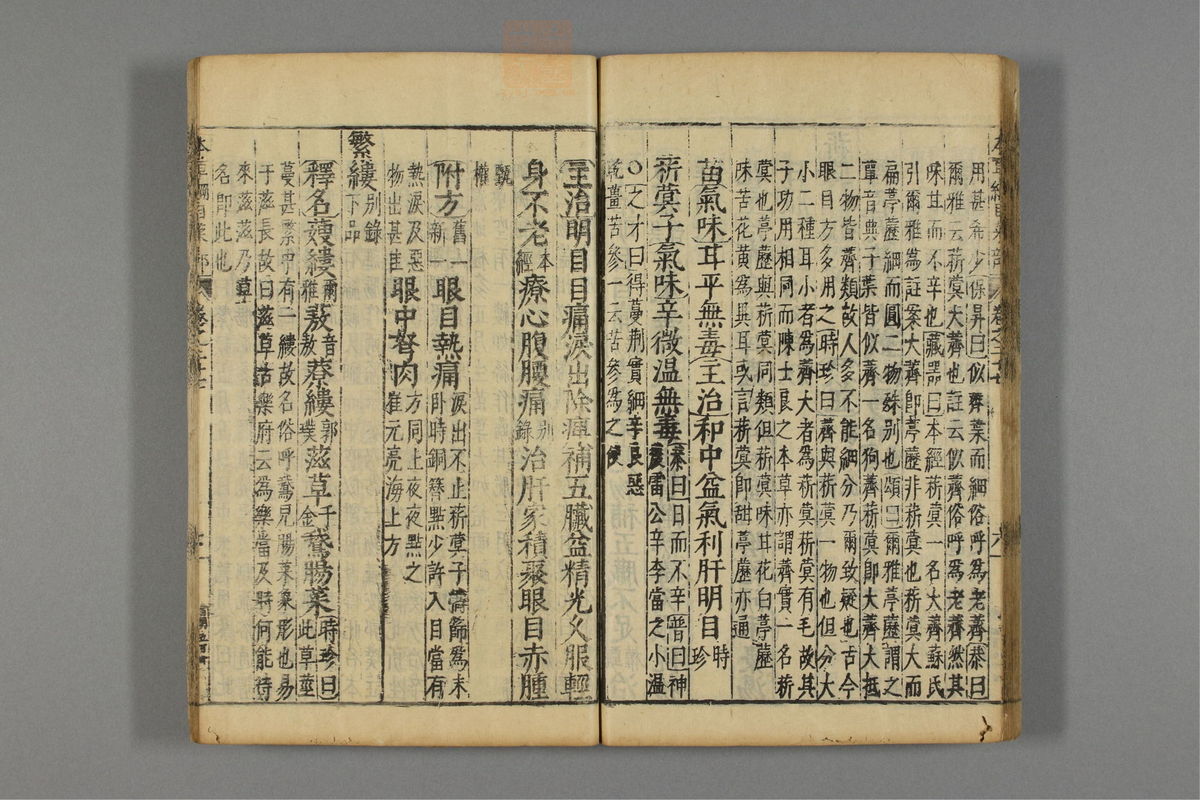 用甚希少保昇曰似薺葉而細俗呼為老薺恭曰
爾雅云菥蓂大薺也註云似薺俗呼為老薺然其
味甘而不辛也藏器曰本經菥蓂一名大薺蘇氏
引爾雅為註案大薺即葶藶非菥蓂也菥蓂大而
扁葶藶細而圓二物殊別也頌曰爾雅葶藶謂之
蕇音典子葉皆似薺一名狗薺菥蓂即大薺大抵
二物皆薺類故人多不能細分乃爾致疑也古今
眼目方多用之時珍曰薺與菥蓂一物也但分大
小二種耳小者為薺大者為菥蓂菥蓂有毛故其
子功用相同而陳士良之本草亦謂薺實一名菥
蓂也葶藶與菥蓂同類但菥蓂味甘花白葶藶
味苦花黃為異耳或言菥蓂即甜葶藶亦通
苗氣味甘平無毒主治和中益氣利肝明目時珍
菥蓂子氣味辛微溫無毒
恭曰甘而不辛普曰神農雷公辛李當之小溫
○之才曰得蔓荊實細辛良惡
乾薑苦參一云苦參為之使
主治明目目痛淚出除痺補五臟益精光久服輕
身不老本經療心腹腰痛別錄治肝家積聚眼目赤腫
甄權
附方舊一新一眼目熱痛淚出不止菥蓂子擣篩為末
臥時銅簪點少許入目當有
熱淚及惡
物出甚佳眼中努肉方同上夜夜點之
崔元亮海上方
繁縷別錄下品
釋名蘩縷爾雅蔜音敖蘩縷郭璞滋草千金鵝腸菜時珍曰此草莖
蔓甚繁中有一縷故名俗呼鵝兒腸菜象形也易
于滋長故曰滋草古樂府云為樂當及時何能待
來滋滋乃草
名即此也
本草綱目菜部 卷之二十七